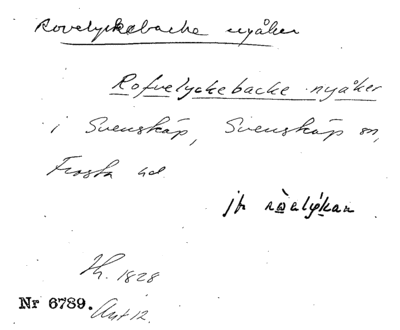 Rovelyckebacke nyåker
Rofvelyckebacke nyåker
i Svenskåp, Svenskåp sn,
Frosta hd
jfr
Jh. 1828
Nr 6789. Akt 12.